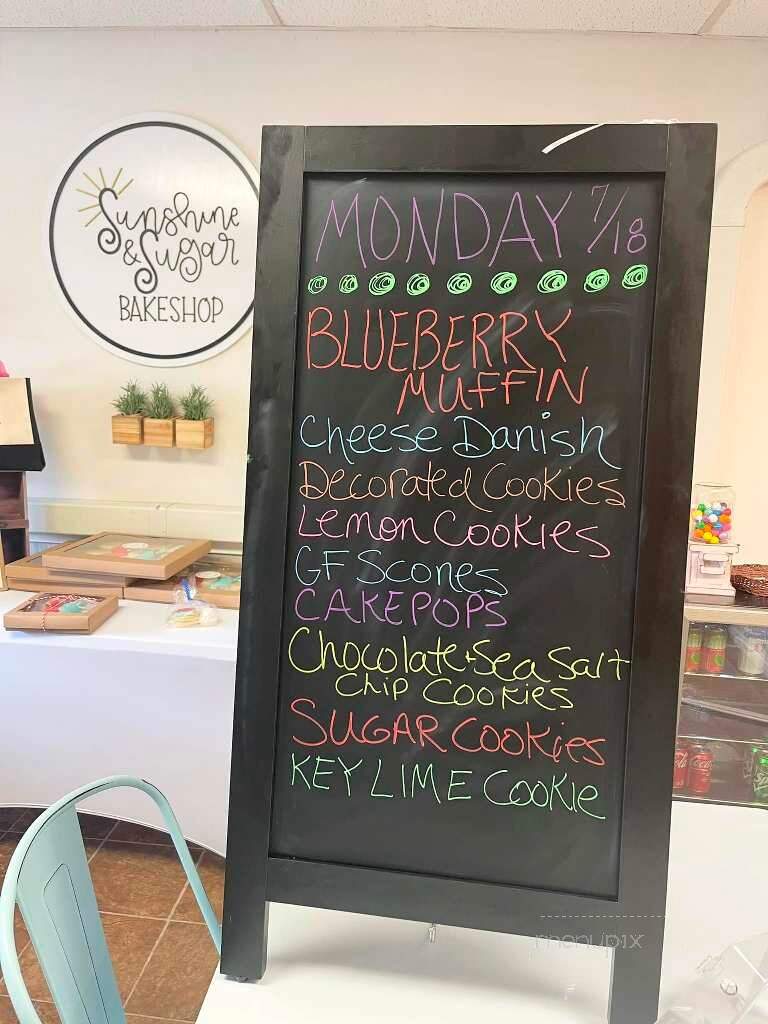 Sunshine
& Sugar
BAKESHOP
MONDAY 7/18
BLUEBERRY
MUFFIN
Cheese Danish
Decorated Cookies
Lemon Cookies
GF Scones
CAKEPOPS
Chocolate + Sea Salt
Chip Cookies
SUGAR COOKies
KEY LIME COOKIE
menupix